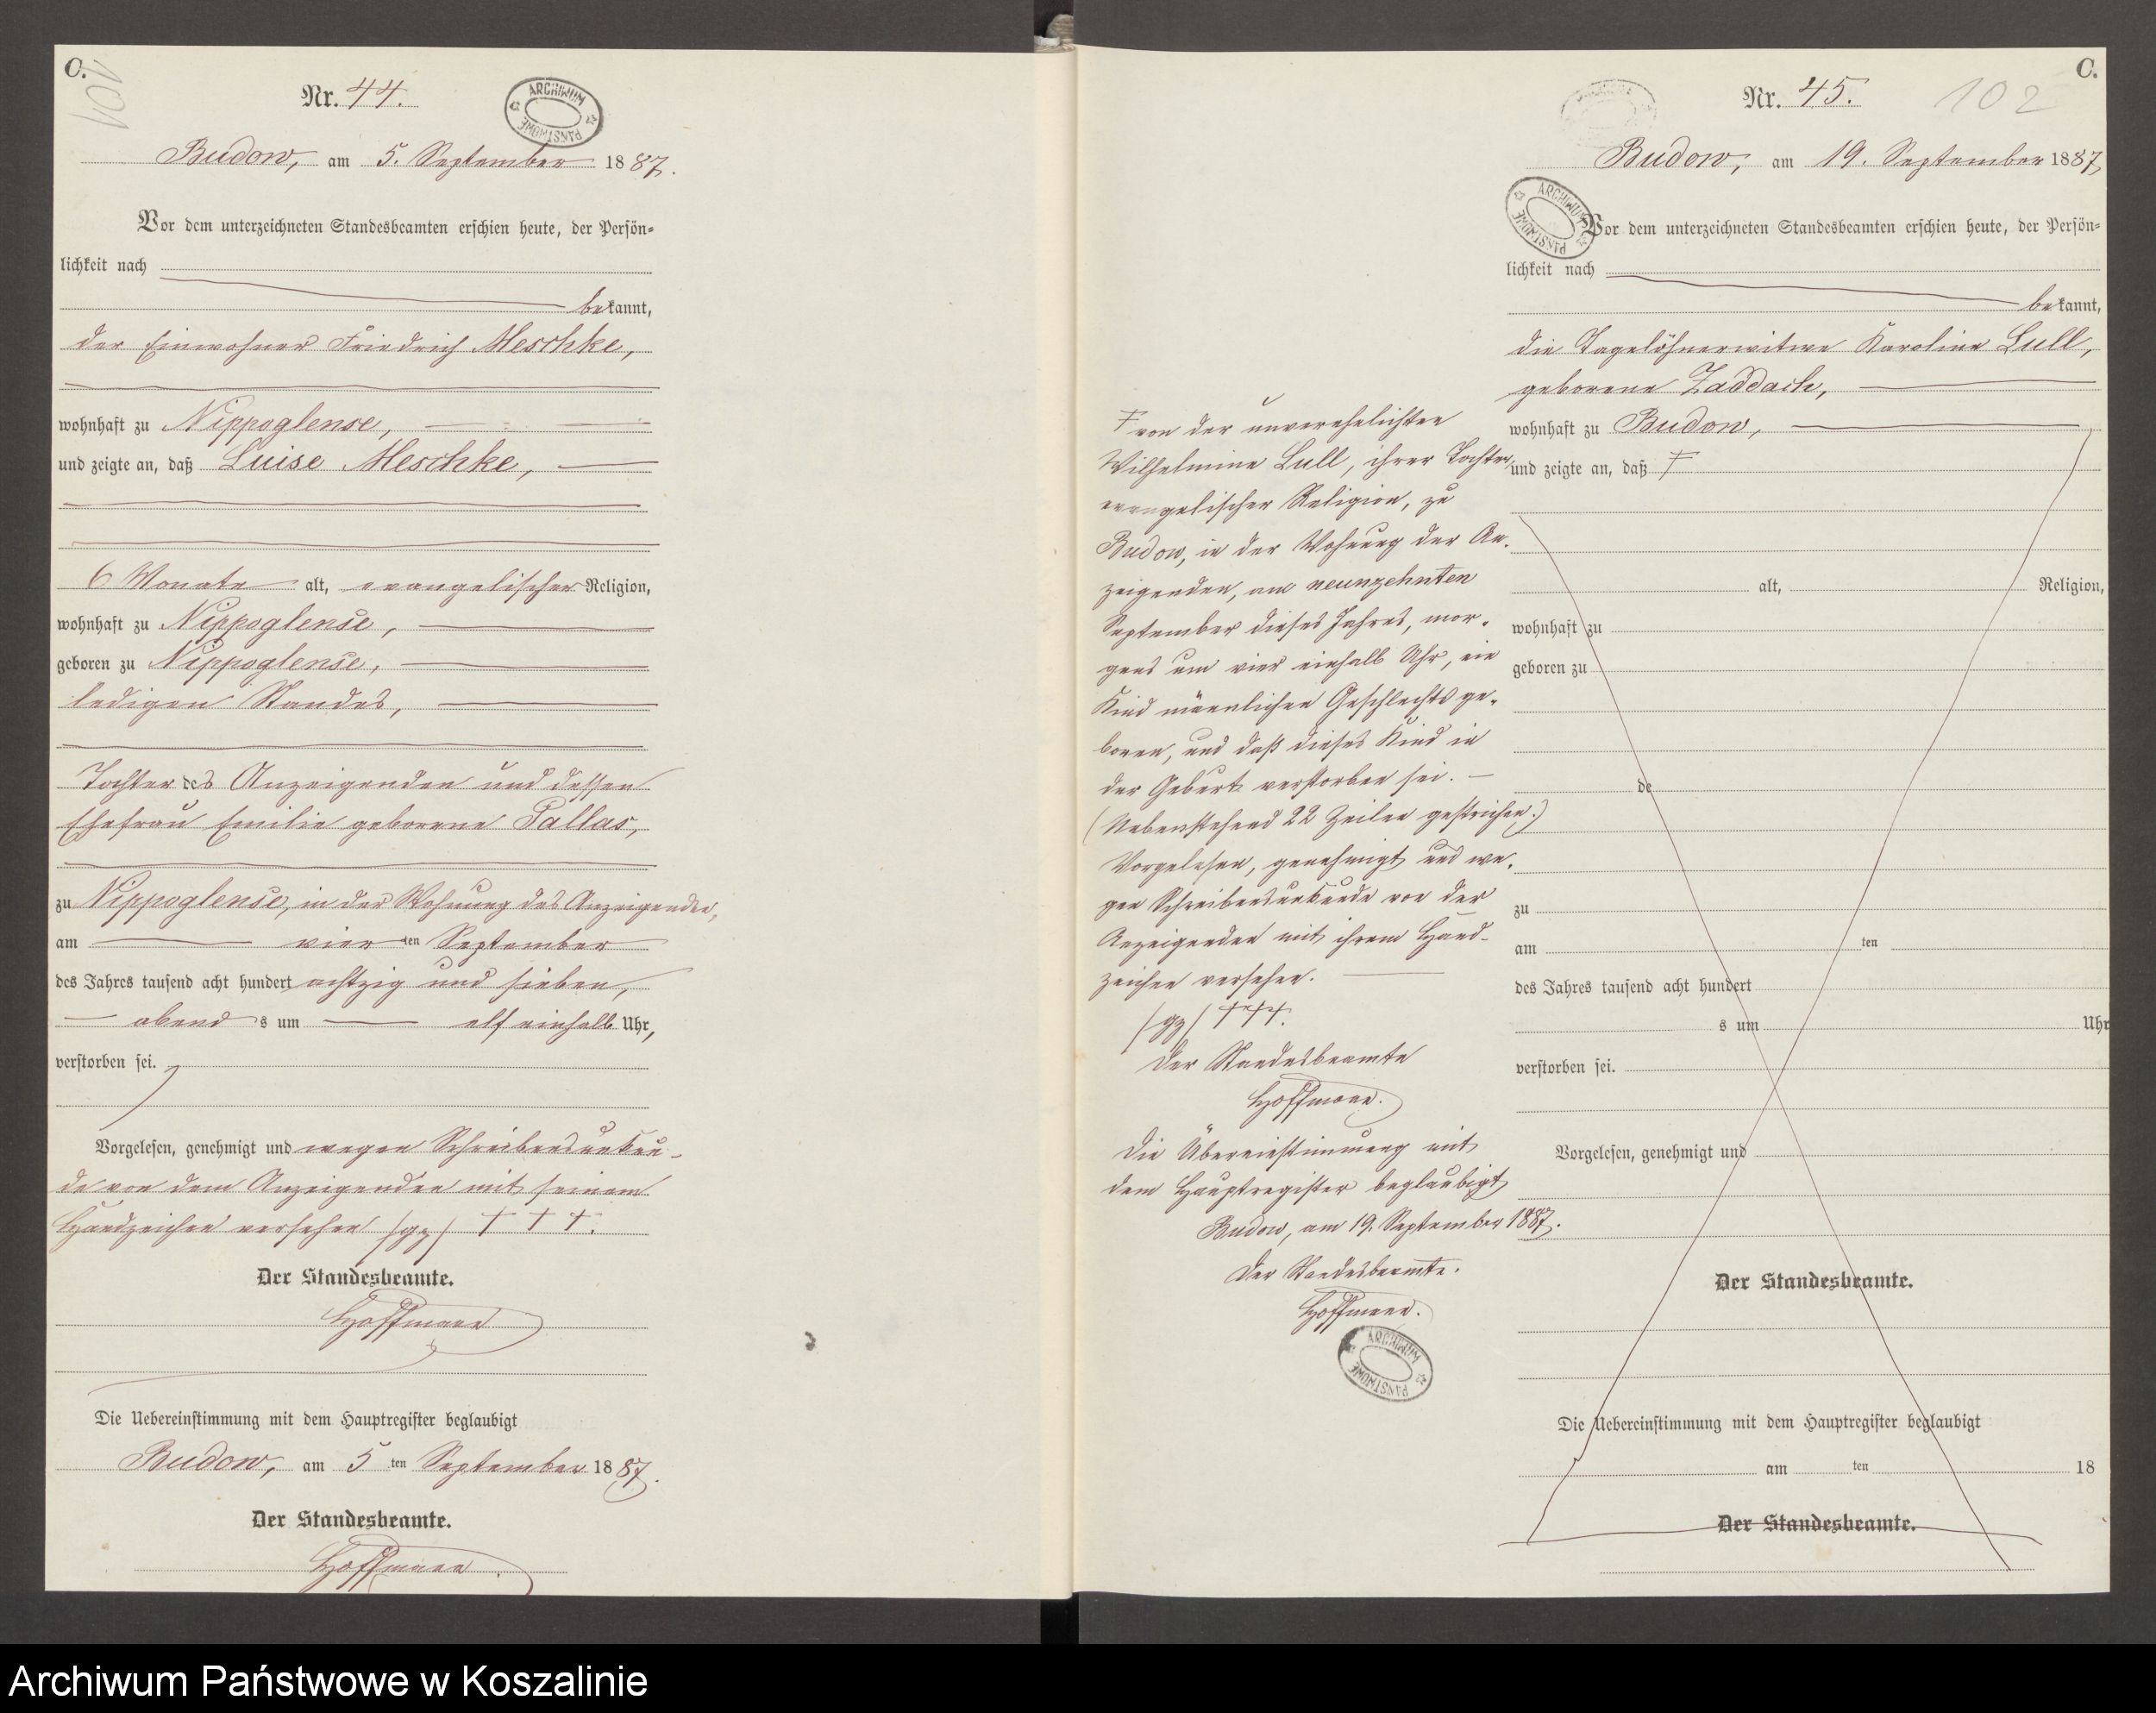 C.
101
Nr. 44.
ARCHIWUM PAŃSTWOWE
Budow, am 5. September 1887.
Vor dem unterzeichneten Standesbeamten erschien heute, der Persön-
lichkeit nach
bekannt,
der Einwohner Friedrich Meschke,
wohnhaft zu Nippoglense,
und zeigte an, daß Luise Meschke,
6 Monate alt, evangelischer Religion,
wohnhaft zu Nippoglense,
geboren zu Nippoglense,
ledigen Standes,
Tochter des Anzeigenden und dessen
Ehefrau Emilie geborene Pallas,
zu Nippoglense, in der Wohnung des Anzeigenden,
am vierten September
des Jahres tausend acht hundert achtzig und sieben,
abends um elf einhalb Uhr,
verstorben sei.
Vorgelesen, genehmigt und wegen Schreibensunkun-
de von dem Anzeigenden mit seinem
Handzeichen versehen /gz/ † † †.
Der Standesbeamte.
Hoffmann
Die Uebereinstimmung mit dem Hauptregister beglaubigt
Budow, am 5ten September 1887.
Der Standesbeamte.
Hoffmann.
C.
Nr. 45.
102
Budow, am 19. September 1887
ARCHIWUM PAŃSTWOWE
Vor dem unterzeichneten Standesbeamten erschien heute, der Persön-
lichkeit nach
bekannt,
die Tagelöhnerwitwe Karoline Lull,
geborene Zaddach,
wohnhaft zu Budow,
und zeigte an, daß †
alt, Religion,
wohnhaft zu
geboren zu
de
zu
am ten
des Jahres tausend acht hundert
s um Uhr
verstorben sei.
Vorgelesen, genehmigt und
Der Standesbeamte.
Die Uebereinstimmung mit dem Hauptregister beglaubigt
am ten 18
Der Standesbeamte.
† von der unverehelichten
Wilhelmine Lull, ihrer Tochter,
evangelischer Religion, zu
Budow, in der Wohnung der An-
zeigenden, am neunzehnten
September dieses Jahres, mor-
gens um vier einhalb Uhr, ein
Kind männlichen Geschlechts ge-
boren, und daß dieses Kind in
der Geburt verstorben sei. —
(Nebenstehend 22 Zeilen gestrichen.)
Vorgelesen, genehmigt und we-
gen Schreibensunkunde von der
Anzeigenden mit ihrem Hand-
zeichen versehen.
/gz/ †††.
Der Standesbeamte
Hoffmann.
Die Übereinstimmung mit
dem Hauptregister beglaubigt
Budow, am 19. September 1887.
Der Standesbeamte.
Hoffmann.
ARCHIWUM PAŃSTWOWE
Archiwum Państwowe w Koszalinie